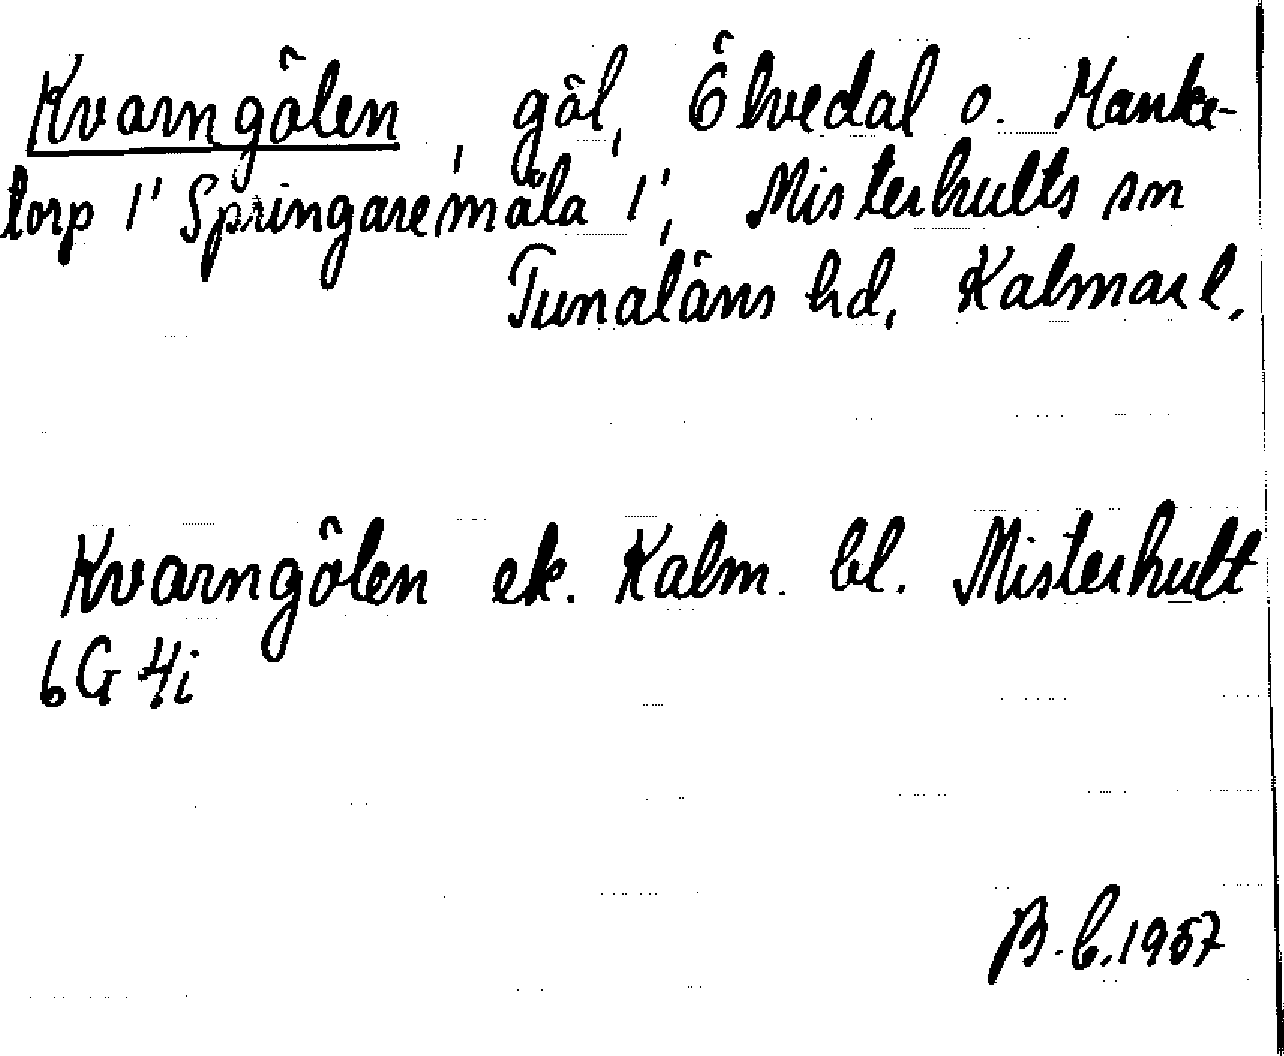 Kvarngölen, göl, Ölvedal o. Manke-
torp 1' Springaremåla 1', Misterhults sn
Tunaläns hd, Kalmar l.
Kvarngölen ek. Kalm. bl. Misterhult
6G 4i
B. L. 1957